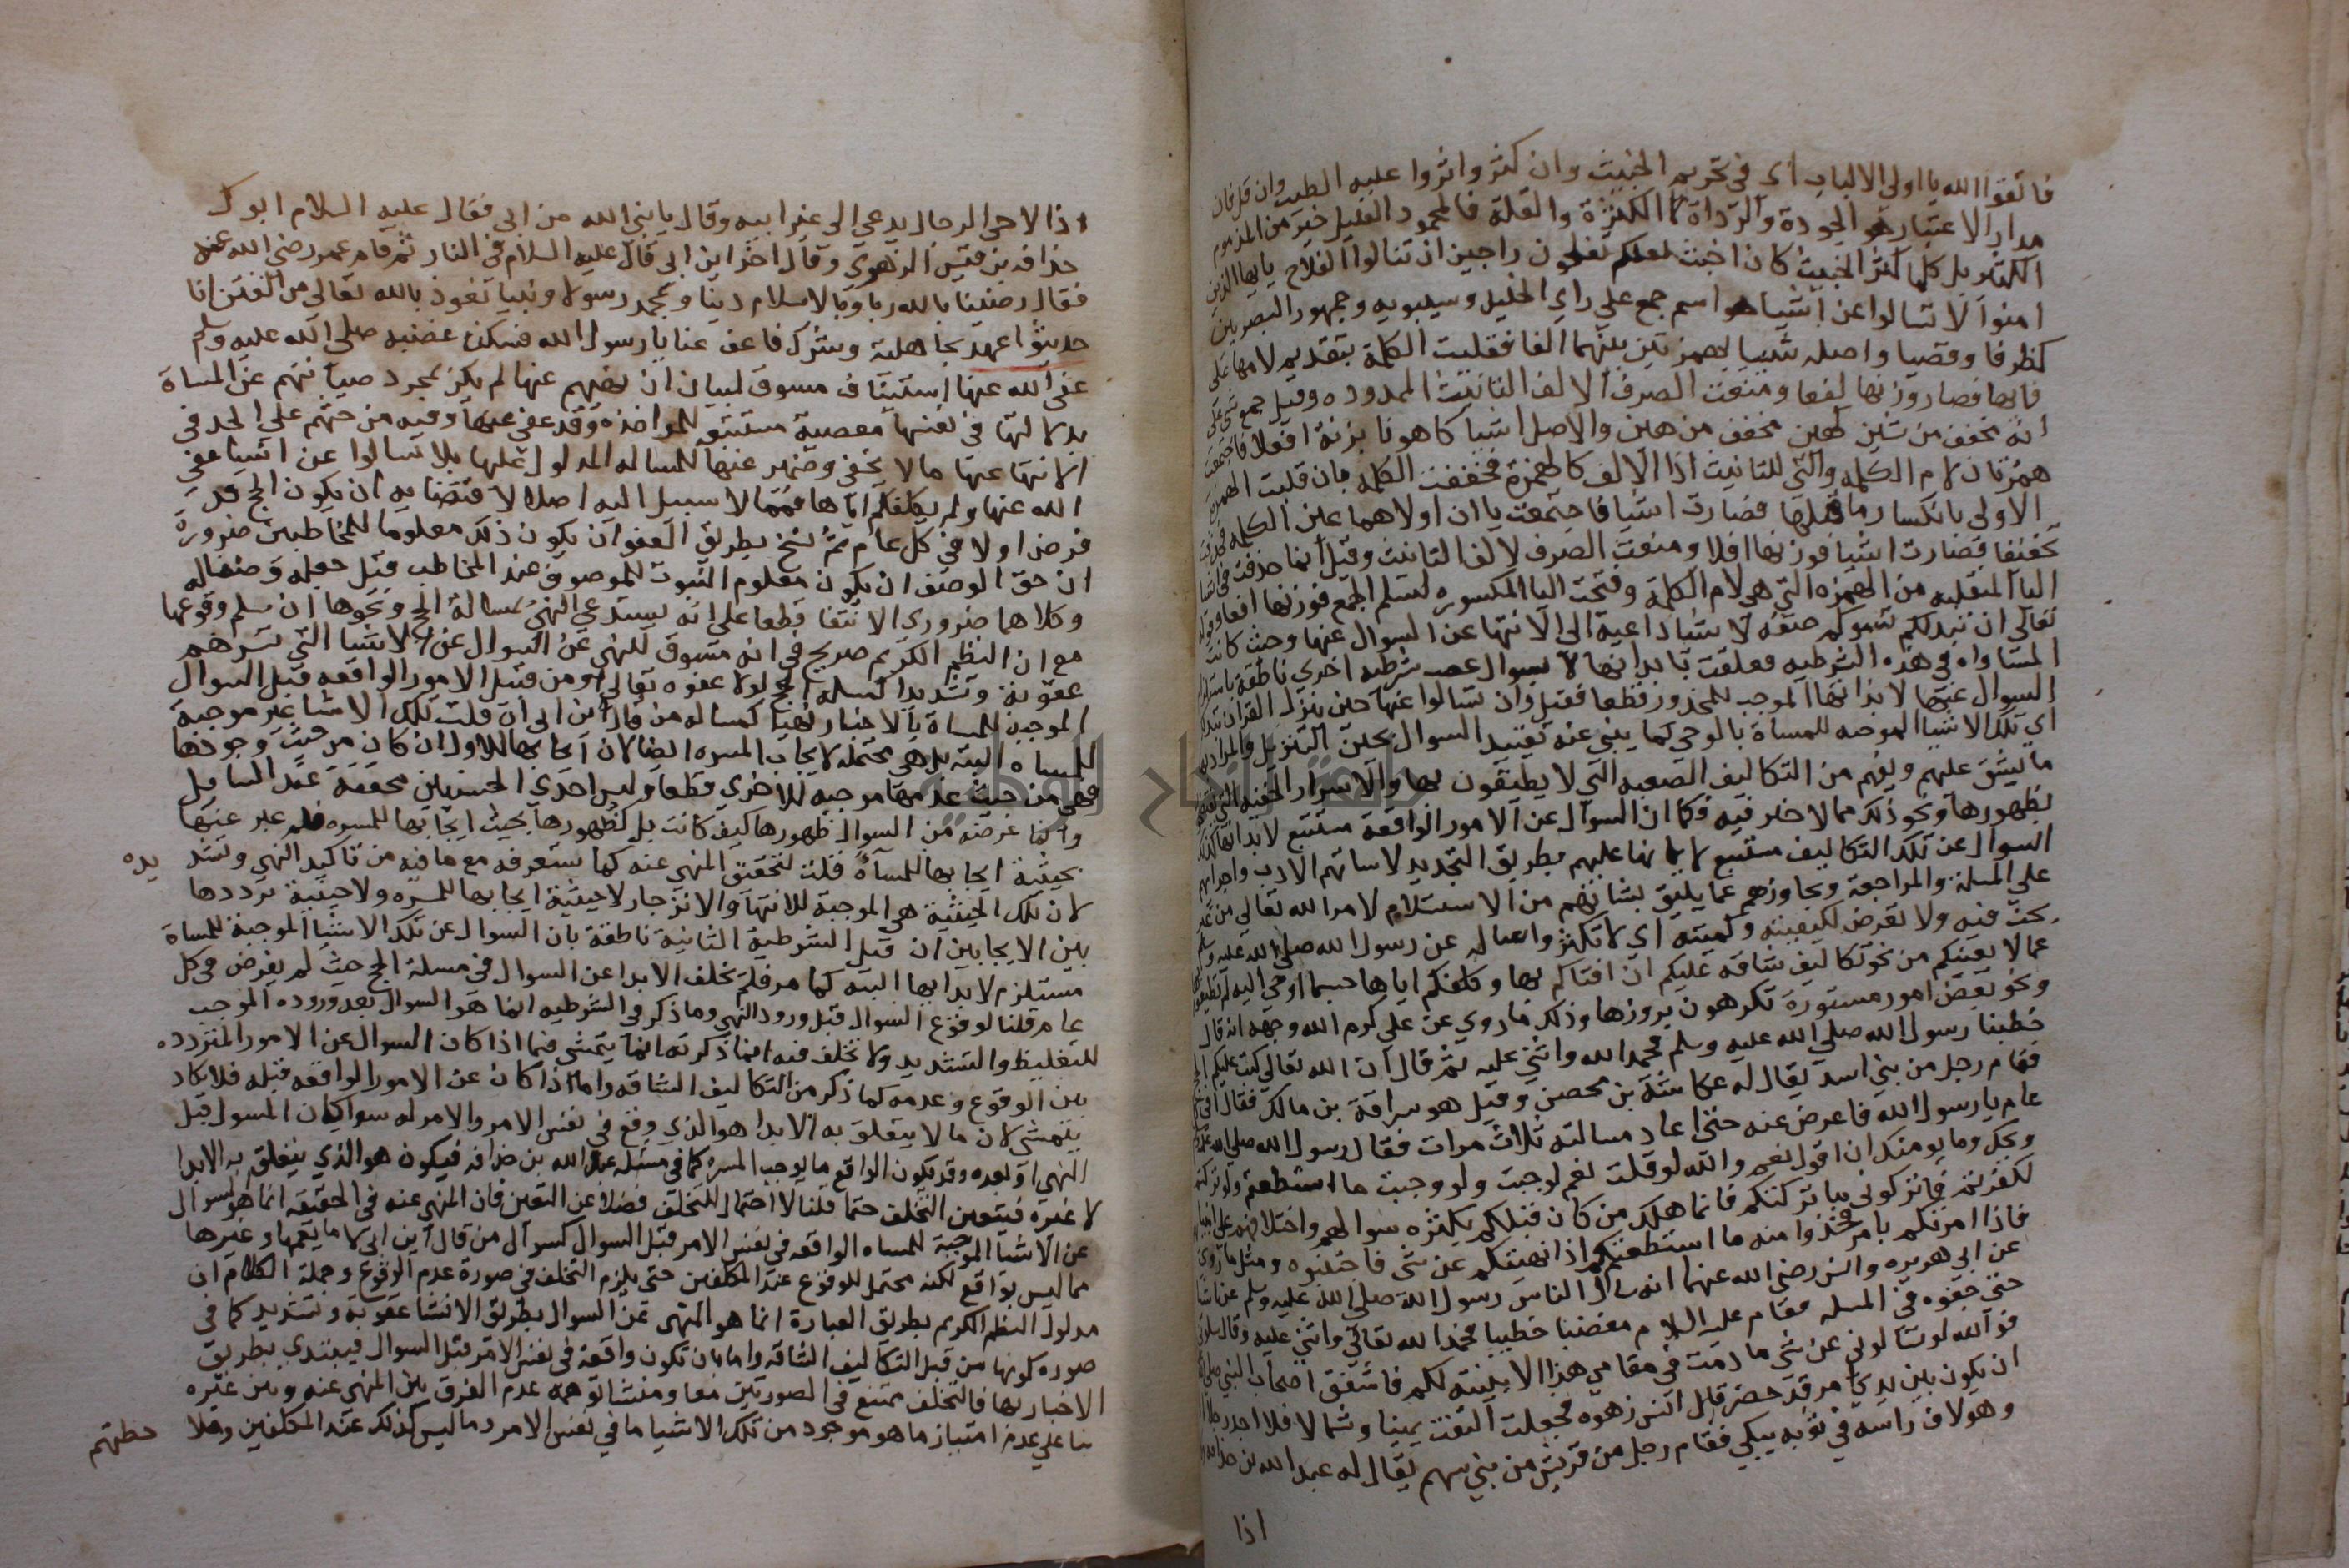 فاتقوا الله يا اولي الالباب اي في تحريم الخبيث وان كثر واثروا عليه الطيب وان قل فان
مدار الاعتبار هو الجودة والرداة لا الكثرة والقلة فالمحمود القليل خير من المذموم
الكثير بل كلما كثر الخبيث كان اخبث لعلكم تفلحون راجين ان تنالوا الفلاح يا يها الذين
امنوا لا تسالوا عن اشيا هو اسم جمع علي راي الخليل وسيبويه وجمهور البصريين
كطرفا وقصبا واصله شييا بهمزتين بينهما الفا فقلبت الكلمة بتقديم لامها علي
فايها فصار وزنها لفعا ومنعت الصرف لالف التانيث الممدوده وقيل جمع شي علي
انه مخفف من شين كهين مخفف من هين والاصل اشييا كاهونا بزنة افعلا فاجتمعت
همزتان لام الكلمه والتي للتانيث اذ الالف كالهمزة فخففت الكلمه بان قلبت الهمزة
الاولي يا نكسار ما قبلها فصارت اشييا فاجتمعت يا ان اولاهما عين الكلمه فحذفت
تخفيفا فصارت اشيا فوزنها افلا ومنعت الصرف لالف التانيث وقيل انما حذفت في اشيا
اليا المنقلبه من الهمزه التي هي لام الكلمة وفتحت اليا المكسوره لتسلم الجمع فوزنها افعا وقوله
تعالي ان تبد لكم تسوكم صفه لاشيا داعية الي الانتها عن السوال عنها وحيث كانت
المساواه في هذه الشرطيه معلقة بابدايها لا بسوال عنها شرطيه اخري ناطقة باستلزام
السوال عنها لابدائها الموجب للمحذور قطعا فقيل وان تسالوا عنها حين ينزل القران تبد لكم
اي تلك الاشيا الموجبه للمساة بالوحي كما ينبي عنه تقييد السوال بحين التنزيل والمراد بها
ما يشق عليهم ويغم من التكاليف الصعبه التي لا يطيقون بها والاسرار الخفيه التي يفتضحون
بظهورها ونحو ذلك مما لا خير فيه فكما ان السوال عن الامور الواقعة مستتبع لابدائها كذلك
السوال عن تلك التكاليف مستتبع لايجابها عليهم بطريق التشديد لاساتهم الادب واجترائهم
علي المسلة والمراجعة وتجاوزهم عما يليق بشانهم من الاستسلام لامر الله تعالي من غير
بحث فيه ولا تعرض لكيفيته وكميته اي لا تكثروا مسالة عن رسول الله صلي الله عليه وسلم
عما لا يعنيكم من نحو تكاليف شاقة عليكم ان افتاكم بها وكلفكم اياها حسبما اوحي اليه لم تطيقوا بها
ونحو بعض امور مستورة تكرهون بروزها وذلك ما روي عن علي كرم الله وجهه انه قال
خطبنا رسول الله صلي الله عليه وسلم فحمد الله واثني عليه ثم قال ان الله تعالي كتب عليكم الحج
فقام رجل من بني اسد يقال له عكاشة بن محصن وقيل هو سراقة بن مالك فقال افي كل
عام يا رسول الله فاعرض عنه حتي اعاد مسالته ثلاث مرات فقال رسول الله صلي الله عليه وسلم
ويحك وما يومنك ان اقول نعم والله لو قلت نعم لوجبت ولو وجبت ما استطعتم ولو تركتم
لكفرتم فاتركوني ما تركتكم فانما هلك من كان قبلكم بكثره سوالهم واختلافهم علي انبيائهم
فاذا امرتكم بامر فخذوا منه ما استطعتم واذا نهيتكم عن شي فاجتنبوه ومثل ما روي
عن ابي هريره وانس رضي الله عنهما انه سال الناس رسول الله صلي الله عليه وسلم عن اشيا
حتي حفوه في المسله فقام عليه السلام مغضبا خطيبا فحمد الله تعالي واثني عليه وقال سلوني
فوالله لو تسالوني عن شي ما دمت في مقامي هذا الا بينته لكم فاشفق اصحاب النبي صلي
ان يكون بين يدي امر قد حضر قال انس رضي فجعلت التفت يمينا وشمالا فلا اجد رجلا
وهو لاف راسه في ثوبه يبكي فقام رجل من قريش من بني سهم يقال له عبد الله بن حذافه
اذا
اذا لاحي الرجال يدعي الي غير ابيه وقال يا نبي الله من ابي فقال عليه السلام ابوك
حذافه بن قيس الزهري وقال اخر اين ابي قال عليه السلام في النار ثم قام عمر رضي الله عنه
فقال رضينا بالله ربا وبالاسلام دينا وبمحمد رسولا ونبيا نعوذ بالله تعالي من الفتن انا
حديثوا عهد بجاهلية وشرك فاعف عنا يا رسول الله فسكن غضبه صلي الله عليه وسلم
عفي الله عنها استيناف مسوق لبيان ان نهيهم عنها لم يكن لمجرد صيانتهم عن المساة
بل لانها في نفسها معصية مستتبعه للمواخذه وقد عفي عنها وفيه من حثهم علي الجد في
الانتها عنها ما لا يخفي وضمير عنها للمساله المدلول عليها بلا تسالوا عن اشيا عفي
الله عنها ولم يكلفكم اياها فمما لا سبيل اليه اصلا لاقتضايه ان يكون الحج قد
فرض اولا في كل عام ثم نسخ بطريق العفو ان يكون ذلك معلوما للمخاطبين ضرورة
ان حق الوصف ان يكون معلوم الثبوت للموصوف عند المخاطب قبل جعله وصفا له
وكلاهما ضروري الانتفا قطعا علي انه يستدعي النهي بمسالة الحج ونحوها ان سلم وقوعها
مع ان النظم الكريم صريح في انه مسوق للنهي عن السوال عن الاشيا التي تسوهم
عقوبة وتشديدا كمسله الحج لولا عفوه تعالي ومن قبيل الامور الواقعه قبل السوال
الموجبه للمساة بالاخبار بها كمساله من قال اين ابي ان قلت تلك الاشيا غير موجبة
للمساه البته بل هي محتمله لايجاب المسره ايضا لان ايجابها للاولي ان كان من حيث وجودها
فهي من حيث عدمها موجبه للاخري قطعا وليس احدي الحيثيتين محققة عند السايل
وانما غرضه من السوال ظهورها كيف كانت بل ظهورها بحيث ايجابها للمسره فلم عبر عنها
بحيثية ايجابها للمساة قلت لتحقيق المنهي عنه كما ستعرفه مع ما فيه من تاكيد النهي وتشد يده
لان تلك الحيثية هي الموجبة للانتها والانزجار لا حيثية ايجابها للمسره ولا حيثية ترددها
بين الايجابين ان قيل الشرطية الثانية ناطقة بان السوال عن تلك الاشيا الموجبة للمساة
مستلزم لابدايها البته كما مر فلم تخلف الابدا عن السوال في مسلة الحج حيث لم يفرض في كل
عام قلنا لوقوع السوال قبل ورود النهي وما ذكر في الشرطيه انما هو السوال بعد وروده الموجب
للتغليظ والتشديد ولا تخلف فيه انما ذكرته انما يتمشي فيما اذا كان السوال عن الامور المتردده
بين الوقوع وعدمه كما ذكر من التكاليف الشاقه واما اذا كان عن الامور الواقعه قبله فلا يكاد
يتمشي لان ما لا يتعلق به الابدا هو الذي وقع في نفس الامر والامر له سوا كان المسول قبل
النهي او بعده وقد يكون الواقع ما يوجب المسره كما في مسئله عبد الله بن حذافه فيكون هو الذي يتعلق به الابدا
لا غيره فيتعين التخلف حتما قلنا لا احتمال للتخلف فضلا عن التعين فان المنهي عنه في الحقيقه انما هو السوال
عن الاشيا الموجبة للمساه الواقعه في نفس الامر قبل السوال كسوال من قال اين ابي لا ما يعمها وغيرها
مما ليس بواقع لكنه محتمل للوقوع عند المكلفين حتي يلزم التخلف في صورة عدم الوقوع وجملة الكلام ان
مدلول النظم الكريم بطريق العبارة انما هو النهي عن السوال بطريق الانشا عقوبة وتشديد كما في
صوره كونها من قبل التكاليف الشاقه واما بان تكون واقعة في نفس الامر قبل السوال فيبتدي بطريق
الاخبار بها فالتخلف ممتنع في الصورتين معا ومنشا توهمه عدم الفرق بين المنهي عنه وبين غيره
بنا علي عدم امتياز ما هو موجود من تلك الاشيا ما في نفس الامر وما ليس كذلك عند المكلفين وملا حظتهم